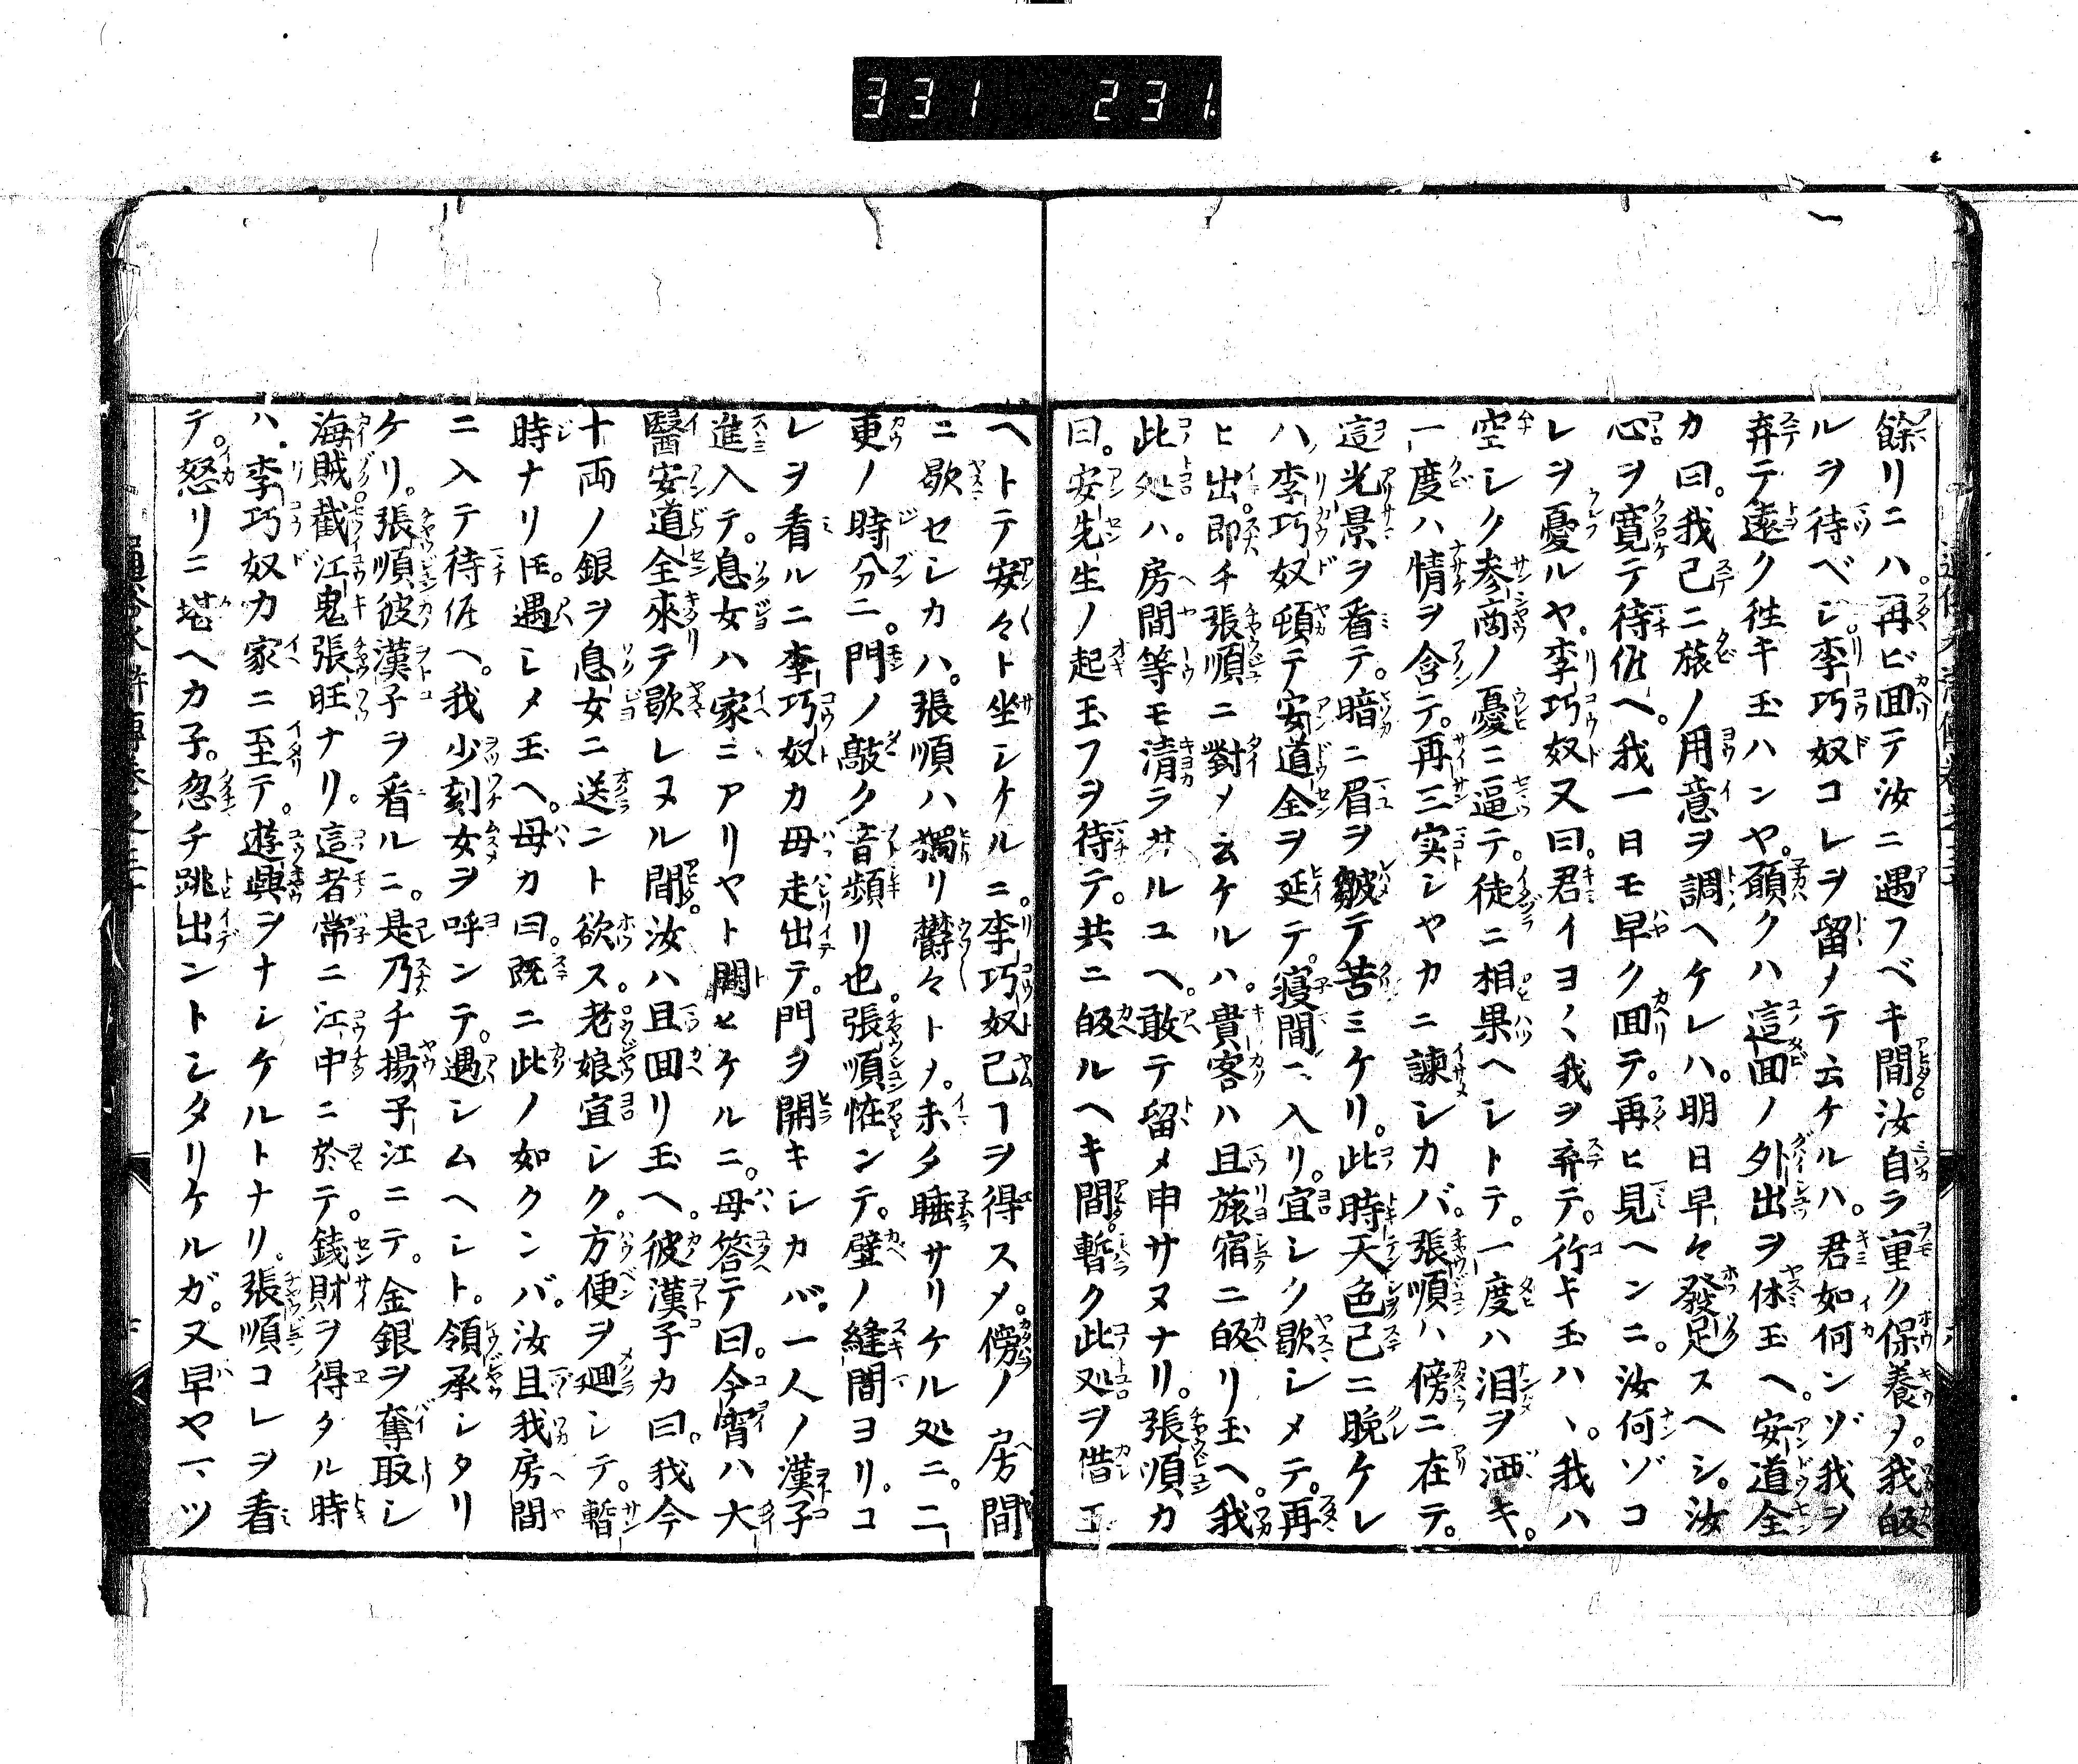 331 231
餘リニハ再ビ囬テ汝ニ遇フベキ間汝自ラ重ク保養〆我皈
ルヲ待ベシ李巧奴コレヲ留メテ云ケルハ君如何ンゾ我ヲ
弃テ遠ク徃キ玉ハンヤ願クハ這囬ノ外出ヲ休玉ヘ安道全
カ曰我已ニ旅ノ用意ヲ調ヘケレハ明日早々發足スヘシ汝
心ヲ寛テ待侭ヘ我一日モ早ク囬テ再ヒ見ヘンニ汝何ゾコ
レヲ憂ルヤ李巧奴又曰君イヨ〱我ヲ弃テ行キ玉ハヽ我ハ
空シク参商ノ憂ニ逼テ徒ニ相果ヘシトテ一度ハ泪ヲ洒キ
一度ハ情ヲ含テ再三実シヤカニ諫シカバ張順ハ傍ニ在テ
這光景ヲ看テ暗ニ眉ヲ皺テ苦ミケリ此時天色已ニ晩ケレ
ハ李巧奴頓テ安道全ヲ延テ寝間ニ入リ宜シク歇シメテ再
ヒ出即チ張順ニ對〆云ケルハ貴客ハ且旅宿ニ皈リ玉ヘ我
此処ハ房間等モ清ラサルユヘ敢テ留メ申サヌナリ張順カ
曰安先生ノ起玉フヲ待テ共ニ皈ルヘキ間暫ク此処ヲ借玉
ヘトテ安々ト坐シケルニ李巧奴已ヿヲ得スメ傍ノ房間
ニ歇セシカハ張順ハ獨リ欝々ト〆未タ睡サリケル処ニ二
更ノ時分ニ門ノ敲ク音頻リ也張順恠ンテ壁ノ縫間ヨリコ
レヲ看ルニ李巧奴カ母走出テ門ヲ開キシカバ一人ノ漢子
進入テ息女ハ家ニアリヤト問ヒケルニ母答テ曰今宵ハ大
醫安道全來テ歇レヌル間汝ハ且囬リ玉ヘ彼漢子カ曰我今
十両ノ銀ヲ息女ニ送ント欲ス老娘宜シク方便ヲ廻シテ暫
時ナリ𪜈遇シメ玉ヘ母カ曰既ニ此ノ如クンバ汝且我房間
ニ入テ待侭ヘ我少刻女ヲ呼ンテ遇シムヘシト領承シタリ
ケリ張順彼漢子ヲ看ルニ是乃チ揚子江ニテ金銀ヲ奪取シ
海賊截江鬼張旺ナリ這者常ニ江中ニ於テ銭財ヲ得タル時
ハ李巧奴カ家ニ至テ遊興ヲナシケルトナリ張順コレヲ看
テ怒リニ堪ヘカ子忽チ跳出ントシタリケルガ又早ヤマツ